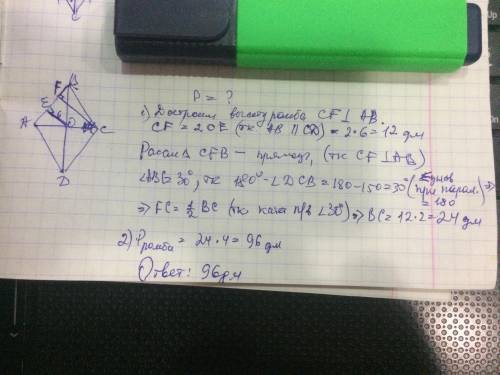 B
F
E
6
O
A
C
D
P = ?
1) Достроим высоту ромба CF ⊥ AB.
CF = 2OE (тк AB || CD) = 2·6 = 12 дм
Рассм Δ CFB – прямоуг, (тк CF ⊥ AB)
∠ABC = 30°, тк 180° - ∠DCB = 180 - 150 = 30° (
при парал.
= 180
) ⇒
⇒ FC = ½ BC (тк катет п/в ∠30°) ⇒ BC = 12·2 = 24 дм
2) Pромба = 24·4 = 96 дм
Ответ: 96 дм